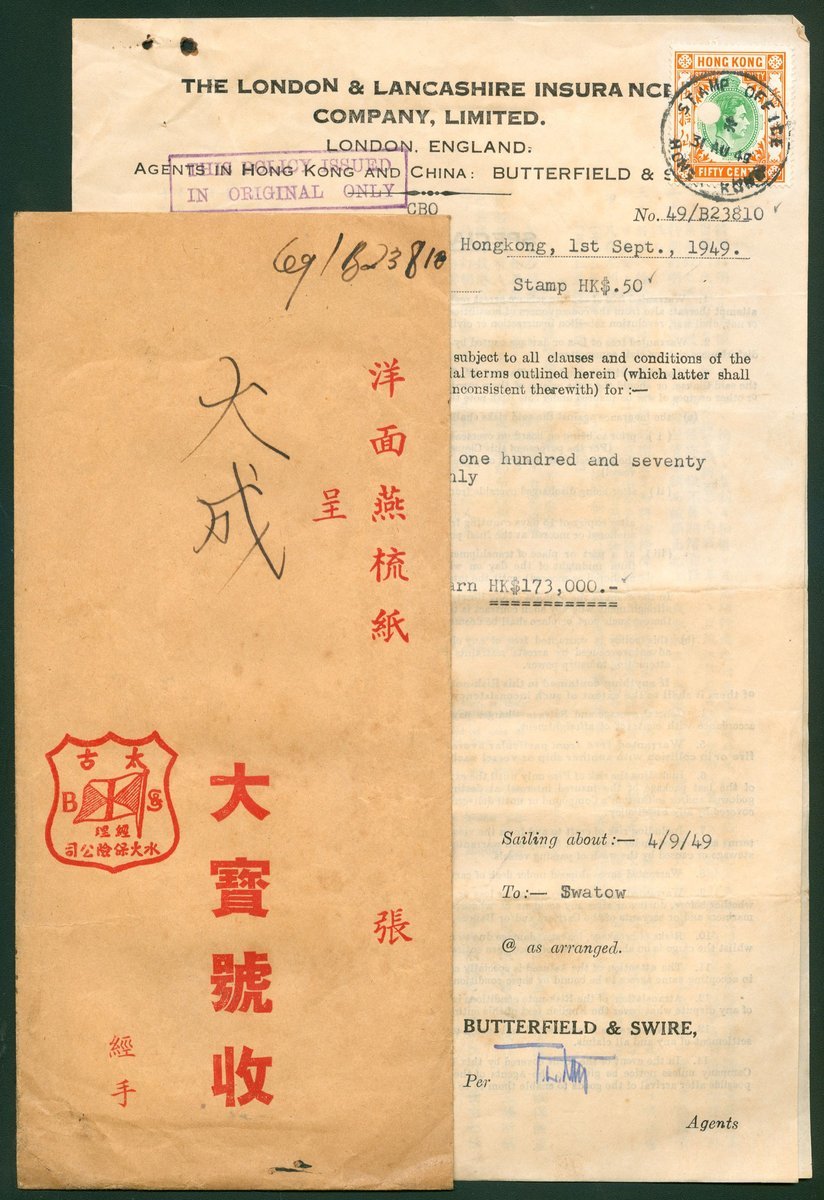 THE LONDON & LANCASHIRE INSURANCE
COMPANY, LIMITED.
LONDON, ENGLAND.
AGENTS IN HONG KONG AND CHINA: BUTTERFIELD & S
THIS POLICY ISSUED
IN ORIGINAL ONLY
HONG KONG
FIFTY CENT
STAMP OFFICE
31 AU 49
HONG KONG
CBO
No. 49/B23810
Hongkong, 1st Sept., 1949.
Stamp HK$.50
subject to all clauses and conditions of the
ial terms outlined herein (which latter shall
nconsistent therewith) for :—
one hundred and seventy
nly
arn HK$173,000.-
Sailing about:— 4/9/49
To:— Swatow
@ as arranged.
BUTTERFIELD & SWIRE,
Per
Agents
69/B23810
洋面燕梳紙
呈
張
大成
大寶號收
經手
太古
B & S
經理
水火保險公司